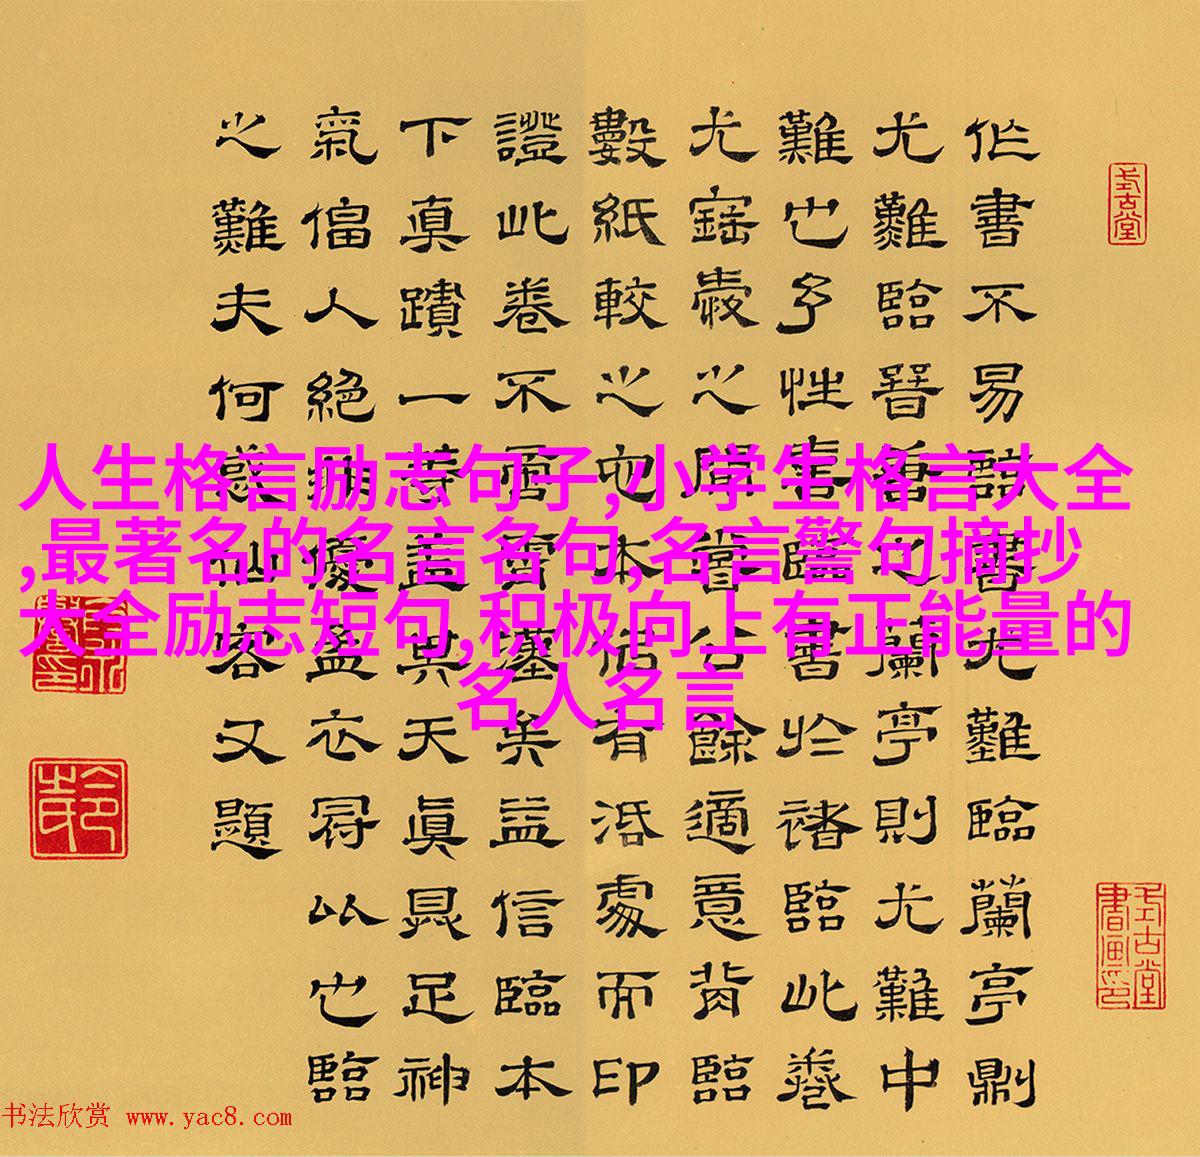 作書不易書尤難臨蘭亭則
尤難臨晉唐之蘭亭則尤難中
難也予性喜臨書於褚臨此卷
尤寶愛之閒嘗公餘適意背臨
數紙較之他本有處而印
證此卷不啻霄壤矣益信臨本
下真蹟一等蓋其天真具足神
氣偪人絕無優孟衣冠以也臨
之難夫何容又題
人生格言励志句子,小学生格言大全
,最著名的名言名句,名言警句摘抄
大全励志短句,积极向上有正能量的
名人名言
书法欣赏 www.yac8.com